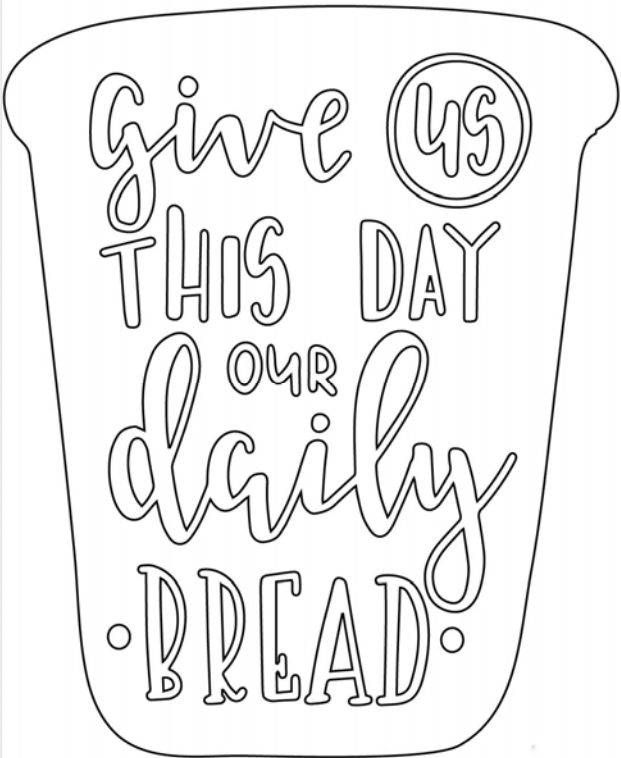 Give us
THIS DAY
OUR
daily
BREAD